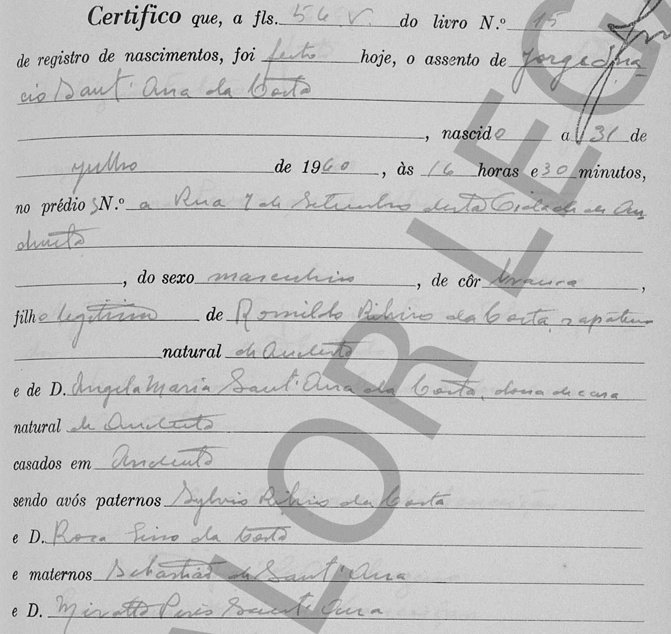 Certifico que, a fls. 56 V. do livro N.º 15
de registro de nascimentos, foi feito hoje, o assento de Jorge Ina
cio Sant'Ana da Costa
, nascido a 31 de
julho de 1960, às 16 horas e 30 minutos,
no prédio SN.º a Rua 7 de Setembro desta Cidade de An
chieta
, do sexo masculino, de côr branca,
filho legitimo de Romildo Ribeiro da Costa, sapateiro
natural de Anchieta
e de D. Angela Maria Sant'Ana da Costa, dona de casa
natural de Anchieta
casados em Anchieta
sendo avós paternos Sylvio Ribeiro da Costa
e D. Rosa da Costa
e maternos Sebastião de Sant'Ana
e D. Peres Sant'Ana
ALOR LEG